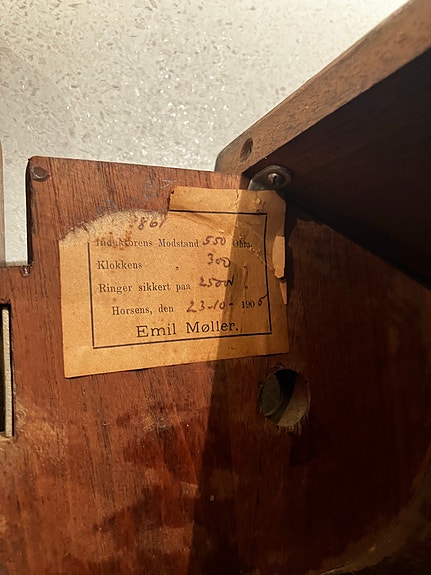 861
Induktorens Modstand 550 Ohm.
Klokkens " 300
Ringer sikkert paa 25000 "
Horsens, den 23-10-1906
Emil Møller.